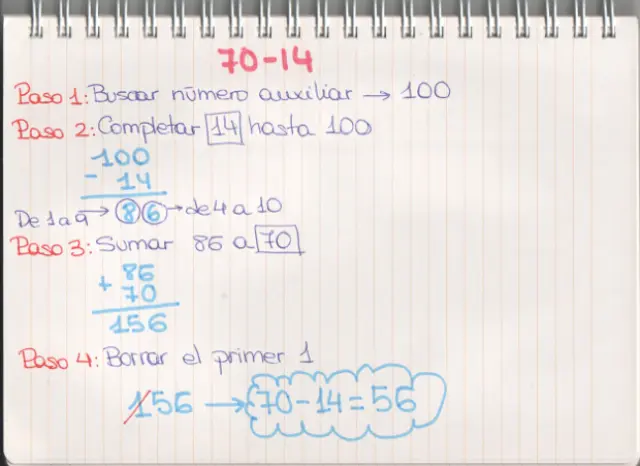 70-14
Paso 1: Buscar número auxiliar → 100
Paso 2: Completar 14 hasta 100
100
- 14
De 1 a 9 → 86 → de 4 a 10
Paso 3: Sumar 86 a 70
86
+ 70
156
Paso 4: Borrar el primer 1
156 → 70-14=56